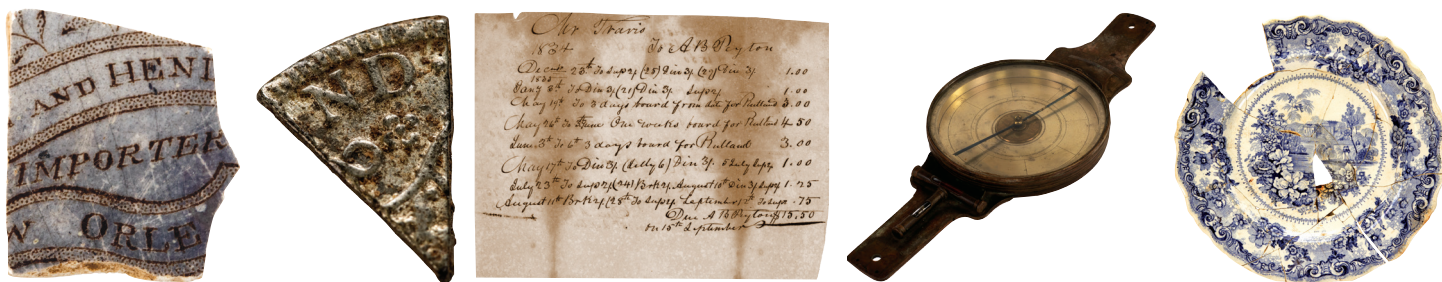 AND HENI
IMPORTER
W ORLE
ND
Mr Travis
1834 To A B Peyton
Decr 25th To Sup 2/ (25) Din 3/ (27) Din 3/ 1.00
1835
Jany 8th To Din 3/ (21) Din 3/ Supr 1.00
May 19th To 3 days board from date for Rutland 3.00
May 26th To June One weeks board for Rutland 4.50
June 3d To 6th 3 days board for Rutland 3.00
May 17th To Din 3/ (July 6) Din 3/ 8 July Supr 1.00
July 23d To Sup 2/ (24) Brk 2/ August 10th Din 3/ Sup 1.25
August 11th Brk 2/ (25th To Sup 2/ September 12th To Sup .75
Due A B Peyton $15.50
on 15th September